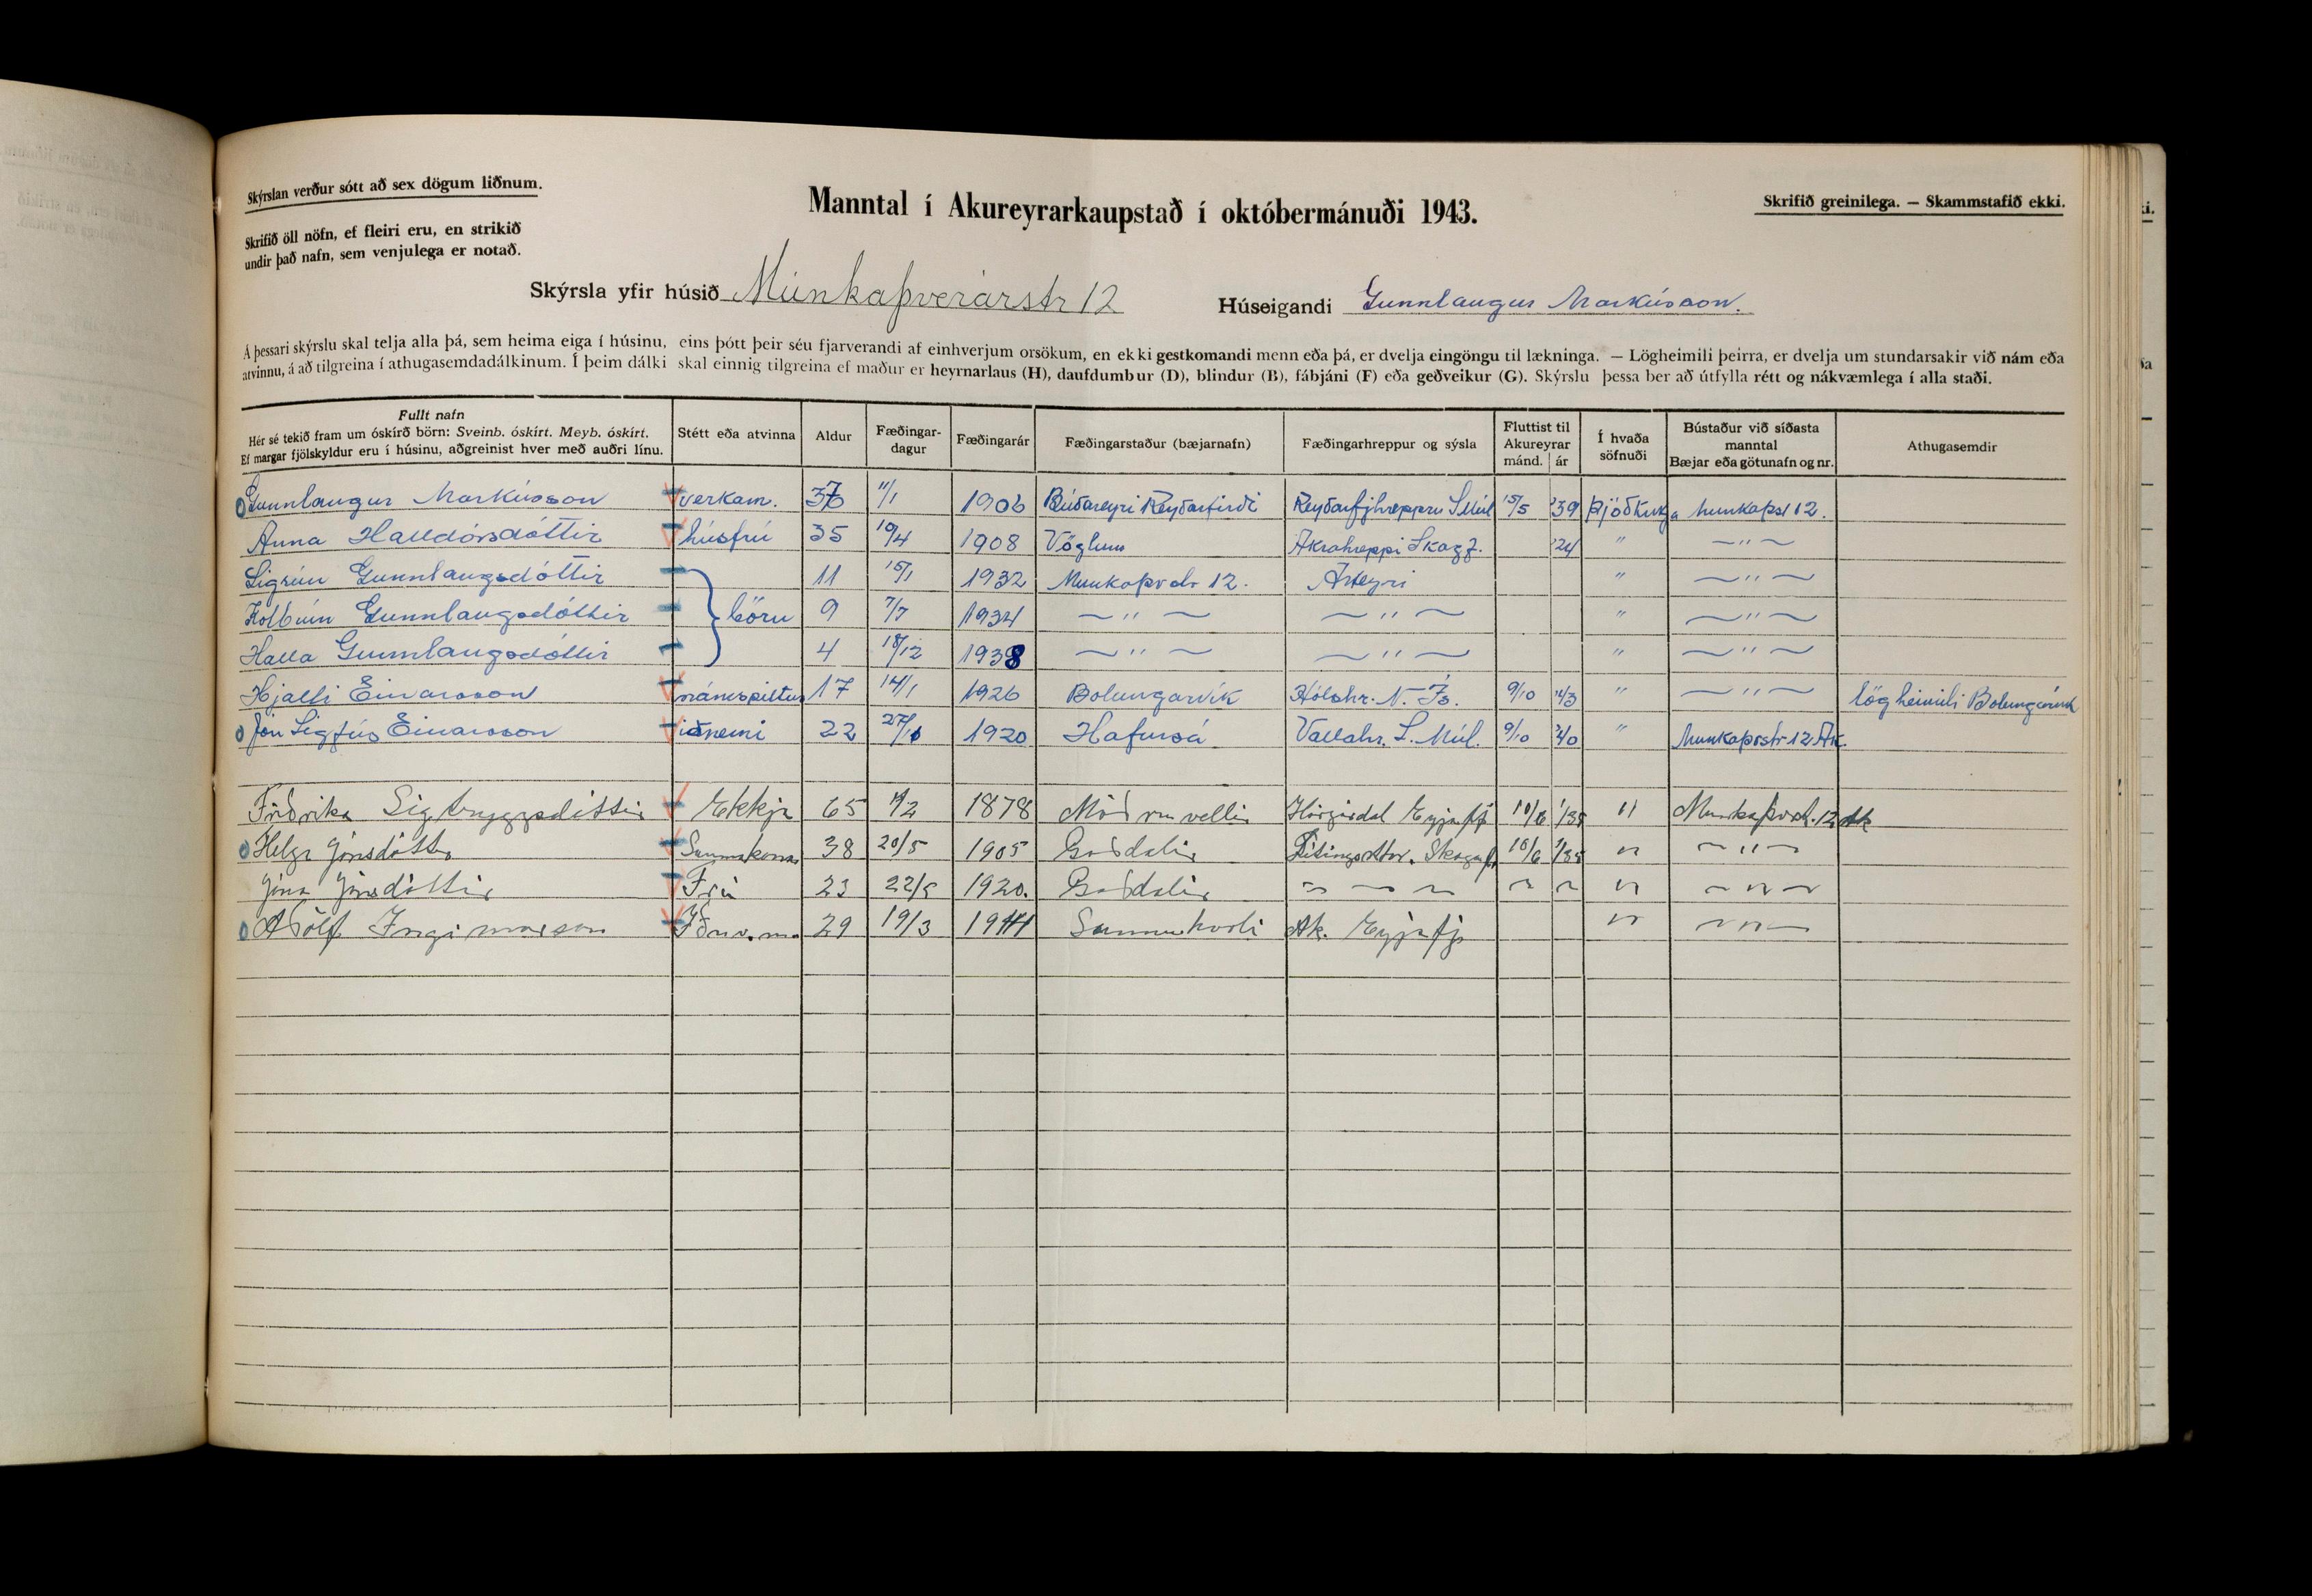 Skýrslan verður sótt að sex dögum liðnum.
Skrifið öll nöfn, ef fleiri eru, en strikið
undir það nafn, sem venjulega er notað.
Manntal í Akureyrarkaupstað í októbermánuði 1943.
Skrifið greinilega. — Skammstafið ekki.
Skýrsla yfir húsið Múnkaþverárstr 12 Húseigandi Gunnlaugur Markússon.
Á þessari skýrslu skal telja alla þá, sem heima eiga í húsinu, eins þótt þeir séu fjarverandi af einhverjum orsökum, en ekki gestkomandi menn eða þá, er dvelja eingöngu til lækninga. — Lögheimili þeirra, er dvelja um stundarsakir við nám eða
atvinnu, á að tilgreina í athugasemdadálkinum. Í þeim dálki skal einnig tilgreina ef maður er heyrnarlaus (H), daufdumbur (D), blindur (B), fábjáni (F) eða geðveikur (G). Skýrslu þessa ber að útfylla rétt og nákvæmlega í alla staði.
Fullt nafn
Hér sé tekið fram um óskírð börn: Sveinb. óskírt. Meyb. óskírt.
Ef margar fjölskyldur eru í húsinu, aðgreinist hver með auðri línu.
Stétt eða atvinna
Aldur
Fæðingar-
dagur
Fæðingarár
Fæðingarstaður (bæjarnafn)
Fæðingarhreppur og sýsla
Fluttist til
Akureyrar
mánd. ár
Í hvaða
söfnuði
Bústaður við síðasta
manntal
Bæjar eða götunafn og nr.
Athugasemdir
Gunnlaugur Markússon verkam. 11/1 1906 Búðareyri Reyðarfirði Reyðarfjhreppru S Múl 15/5 '39 Þjóðkirkja Munkaþst 12.
Anna Halldórsdóttir húsfrú 35 19/4 1908 Vöglum Akrahreppi Skagf. '24 " — " —
Sigrún Gunnlaugsdóttir 11 15/1 1932 Munkaþvstr 12. Akeyri " — " —
Kolbrún Gunnlaugsdóttir börn 9 7/7 1934 — " — — " — " — " —
Halla Gunnlaugsdóttir 4 18/12 1938 — " — — " — " — " —
Hjalti Einarsson námspiltur 17 14/1 1926 Bolungarvík Hólshr. N. Ís. 9/10 '43 " — " — lögheimili Bolungarvík
Jón Sigfús Einarsson iðnemi 22 1920 Hafursá Vallahr. S. Múl. 9/10 '40 " Munkaþvstr 12 Ak.
Friðrika Sigtryggsdóttir Ekkja 65 1878 Möðruvellir Hörgárdal Eyjafj " Munkaþvstr. 12 Ak
Helga Jónsdóttir Saumakona 38 20/5 1905 Goðdalir Skagafj. " — " —
Jóna Jónsdóttir Frú 23 22/5 1920. Goðdalir — — — — — " — " —
Adólf Ingimarsson 29 19/3 1914 Sunnuhvoli Ak. Eyjafj " — " —